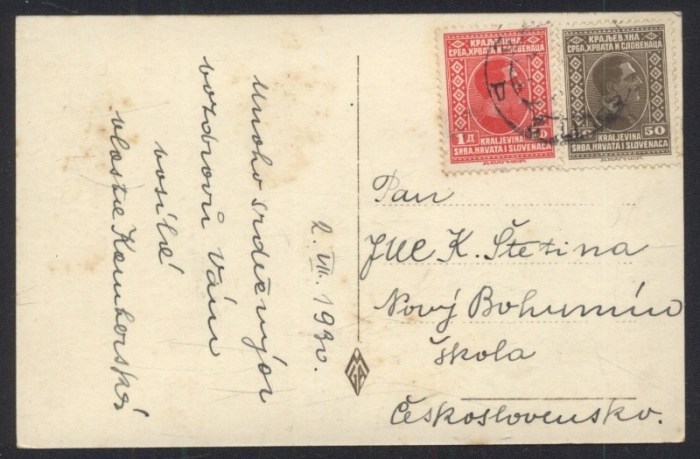 Mnoho srdečných
pozdravů Vám
posílá
2. VII. 1930.
КРАЉЕВИНА
СРБА, ХРВАТА И СЛОВЕНАЦА
1 Д
KRALJEVINA
SRBA, HRVATA I SLOVENACA
КРАЉЕВИНА
СРБА, ХРВАТА И СЛОВЕНАЦА
50
KRALJEVINA
SRBA, HRVATA I SLOVENACA
Pan
K. Štetina
Nový Bohumín
škola
Československo.